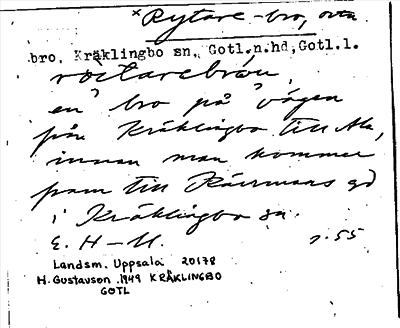 × Rytare-bro, ota.
bro, Kräklingbo sn, Gotl.n.hd, Gotl.l.
röitarebräu,
en bro på vägen
från Kräklingbo till Ala,
innan man kommer
fram till Kärrmans gd
i Kräklingbo sn.
E. H-M. 55
Landsm. Uppsala 20178
H. Gustavson 1949 KRÄKLINGBO
GOTL